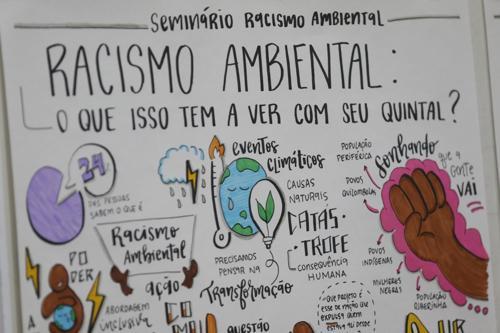 SEMINÁRIO RACISMO AMBIENTAL
RACISMO AMBIENTAL:
O QUE ISSO TEM A VER COM SEU QUINTAL?
24
DAS PESSOAS
SABEM O QUE É
Racismo
Ambiental
PODER
AÇÃO
ABORDAGEM
inclusiva
eventos
climáticos
CAUSAS
NATURAIS
CATÁS-
TROFE
CONSEQUÊNCIA
HUMANA
PRECISAMOS
PENSAR NA
Transformação
QUESTÃO
QUE PROJETO É
ESSE DE NAÇÃO QUE
EXPULSA QUEM
Sonhando
que a
gente
VAI
POPULAÇÃO
PERIFÉRICA
POVOS
QUILOMBOLAS
POVOS
INDÍGENAS
MULHERES
NEGRAS
POPULAÇÃO
RIBEIRINHA